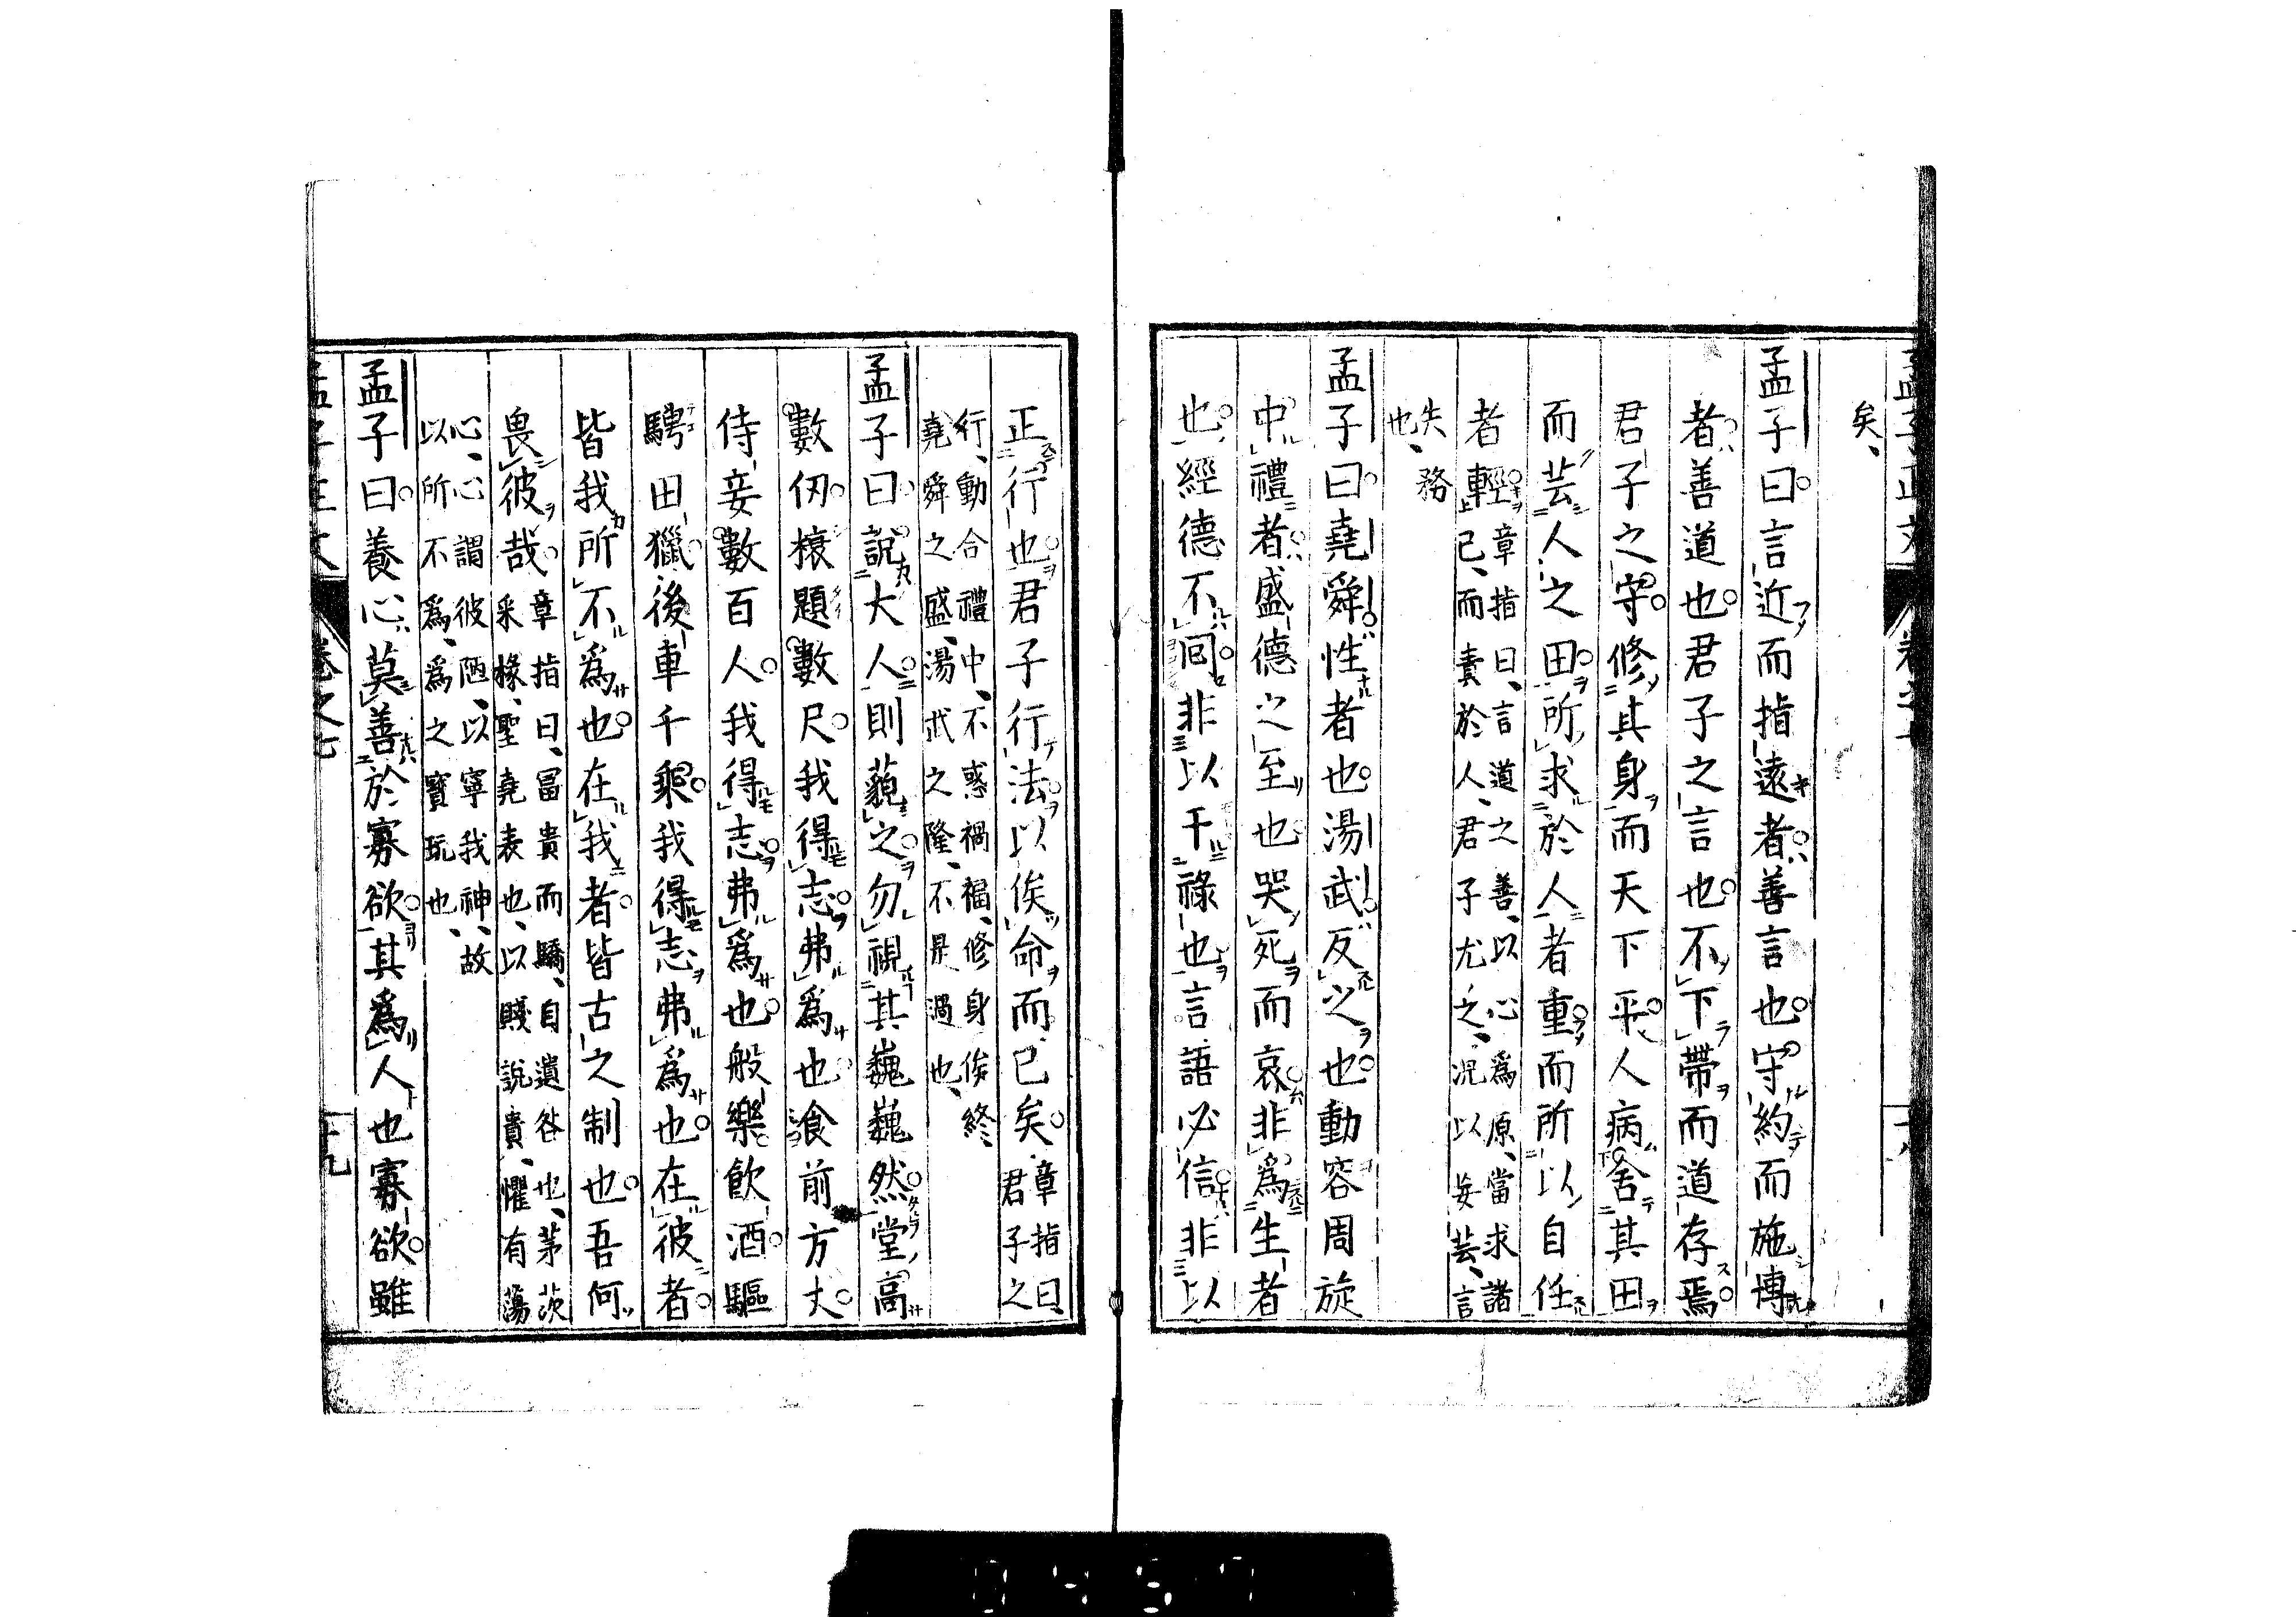 矣、
孟子曰言近而指遠者善言也守約而施博
者善道也君子之言也不下帶而道存焉
君子之守修其身而天下平人病舍其田
而芸人之田所求於人者重而所以自任
者輕章指曰、言道之善、以心爲原、當求諸
己、而責於人、君子尤之、况以妄芸、言
失務
也、
孟子曰堯舜性者也湯武反之也動容周旋
中禮者盛德之至也哭死而哀非爲生者
也經德不回非以干祿也言語必信非以
正行也君子行法以俟命而已矣章指曰、
君子之
行、動合禮中、不惑禍福、修身俟終、
堯舜之盛、湯武之隆、不是過也、
孟子曰說大人則藐之勿視其巍巍然堂高
數仞榱題數尺我得志弗爲也飡前方丈
侍妾數百人我得志弗爲也般樂飮酒驅
騁田獵後車千乘我得志弗爲也在彼者
皆我所不爲也在我者皆古之制也吾何
畏彼哉章指曰、冨貴而驕、自遺咎也、茅茨
采椽、聖堯表也、以賤說貴、懼有蕩
心、心謂彼陋、以寧我神、故
以所不爲、爲之寳玩也、
孟子曰養心莫善於寡欲其爲人也寡欲雖